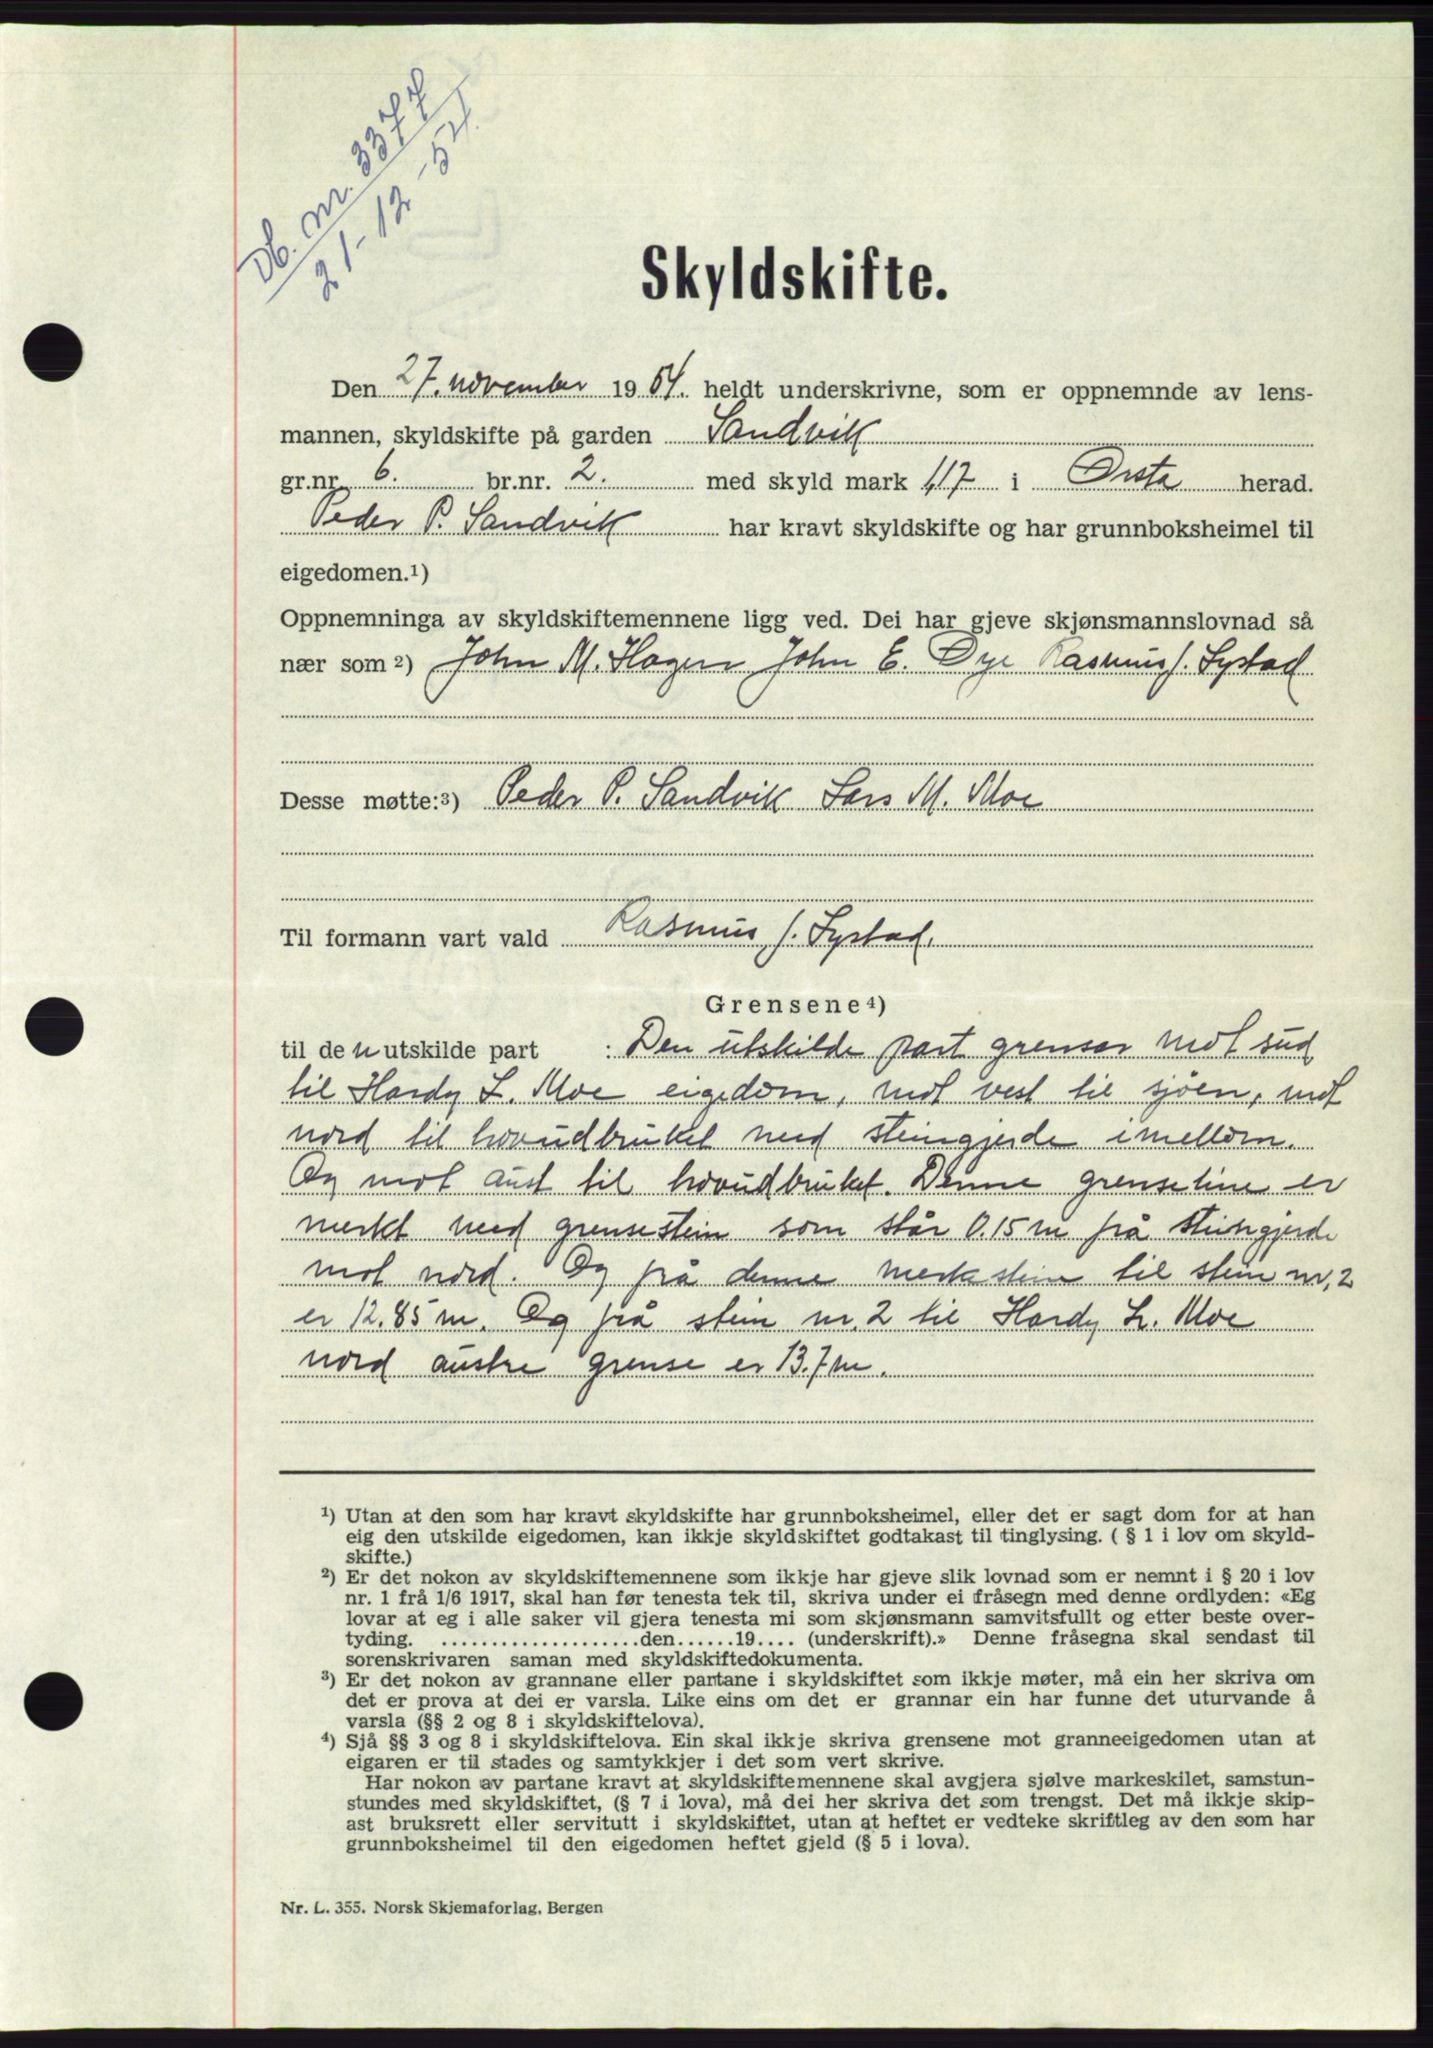 Db. nr. 3377
21-12-54.
Skyldskifte.
Den 27. november 1954. heldt underskrivne, som er oppnemnde av lens-
mannen, skyldskifte på garden Sandvik
gr.nr. 6. br.nr. 2. med skyld mark 1,17 i Ørsta herad.
Peder P. Sandvik har kravt skyldskifte og har grunnboksheimel til
eigedomen.¹)
Oppnemninga av skyldskiftemennene ligg ved. Dei har gjeve skjønsmannslovnad så
nær som ²) John M. Hagen John E. Øye Rasmus J. Systad
Desse møtte:³) Peder P. Sandvik Lars M. Moe
Til formann vart vald Rasmus J. Systad.
Grensene⁴)
til den utskilde part : Den utskilde part grenser mot sud
til Hardy L. Moe eigedom, mot vest til sjøen, mot
nord til hovudbruket med steingjerde imellom.
Og mot aust til hovudbruket. Denne grenseline er
merkt med grensestein som står 0.15 m frå steingjerde
mot nord. Og frå denne merkstein til stein nr. 2
er 12.85 m. Og frå stein nr. 2 til Hardy L. Moe
nord austre grense er 13.7 m.
¹) Utan at den som har kravt skyldskifte har grunnboksheimel, eller det er sagt dom for at han
eig den utskilde eigedomen, kan ikkje skyldskiftet godtakast til tinglysing. ( § 1 i lov om skyld-
skifte.)
²) Er det nokon av skyldskiftemennene som ikkje har gjeve slik lovnad som er nemnt i § 20 i lov
nr. 1 frå 1/6 1917, skal han før tenesta tek til, skriva under ei fråsegn med denne ordlyden: «Eg
lovar at eg i alle saker vil gjera tenesta mi som skjønsmann samvitsfullt og etter beste over-
tyding. ....................den......19.... (underskrift).» Denne fråsegna skal sendast til
sorenskrivaren saman med skyldskiftedokumenta.
³) Er det nokon av grannane eller partane i skyldskiftet som ikkje møter, må ein her skriva om
det er prova at dei er varsla. Like eins om det er grannar ein har funne det uturvande å
varsla (§§ 2 og 8 i skyldskiftelova).
⁴) Sjå §§ 3 og 8 i skyldskiftelova. Ein skal ikkje skriva grensene mot granneeigedomen utan at
eigaren er til stades og samtykkjer i det som vert skrive.
Har nokon av partane kravt at skyldskiftemennene skal avgjera sjølve markeskilet, samstun-
stundes med skyldskiftet, (§ 7 i lova), må dei her skriva det som trengst. Det må ikkje skip-
ast bruksrett eller servitutt i skyldskiftet, utan at heftet er vedteke skriftleg av den som har
grunnboksheimel til den eigedomen heftet gjeld (§ 5 i lova).
Nr. L. 355. Norsk Skjemaforlag, Bergen